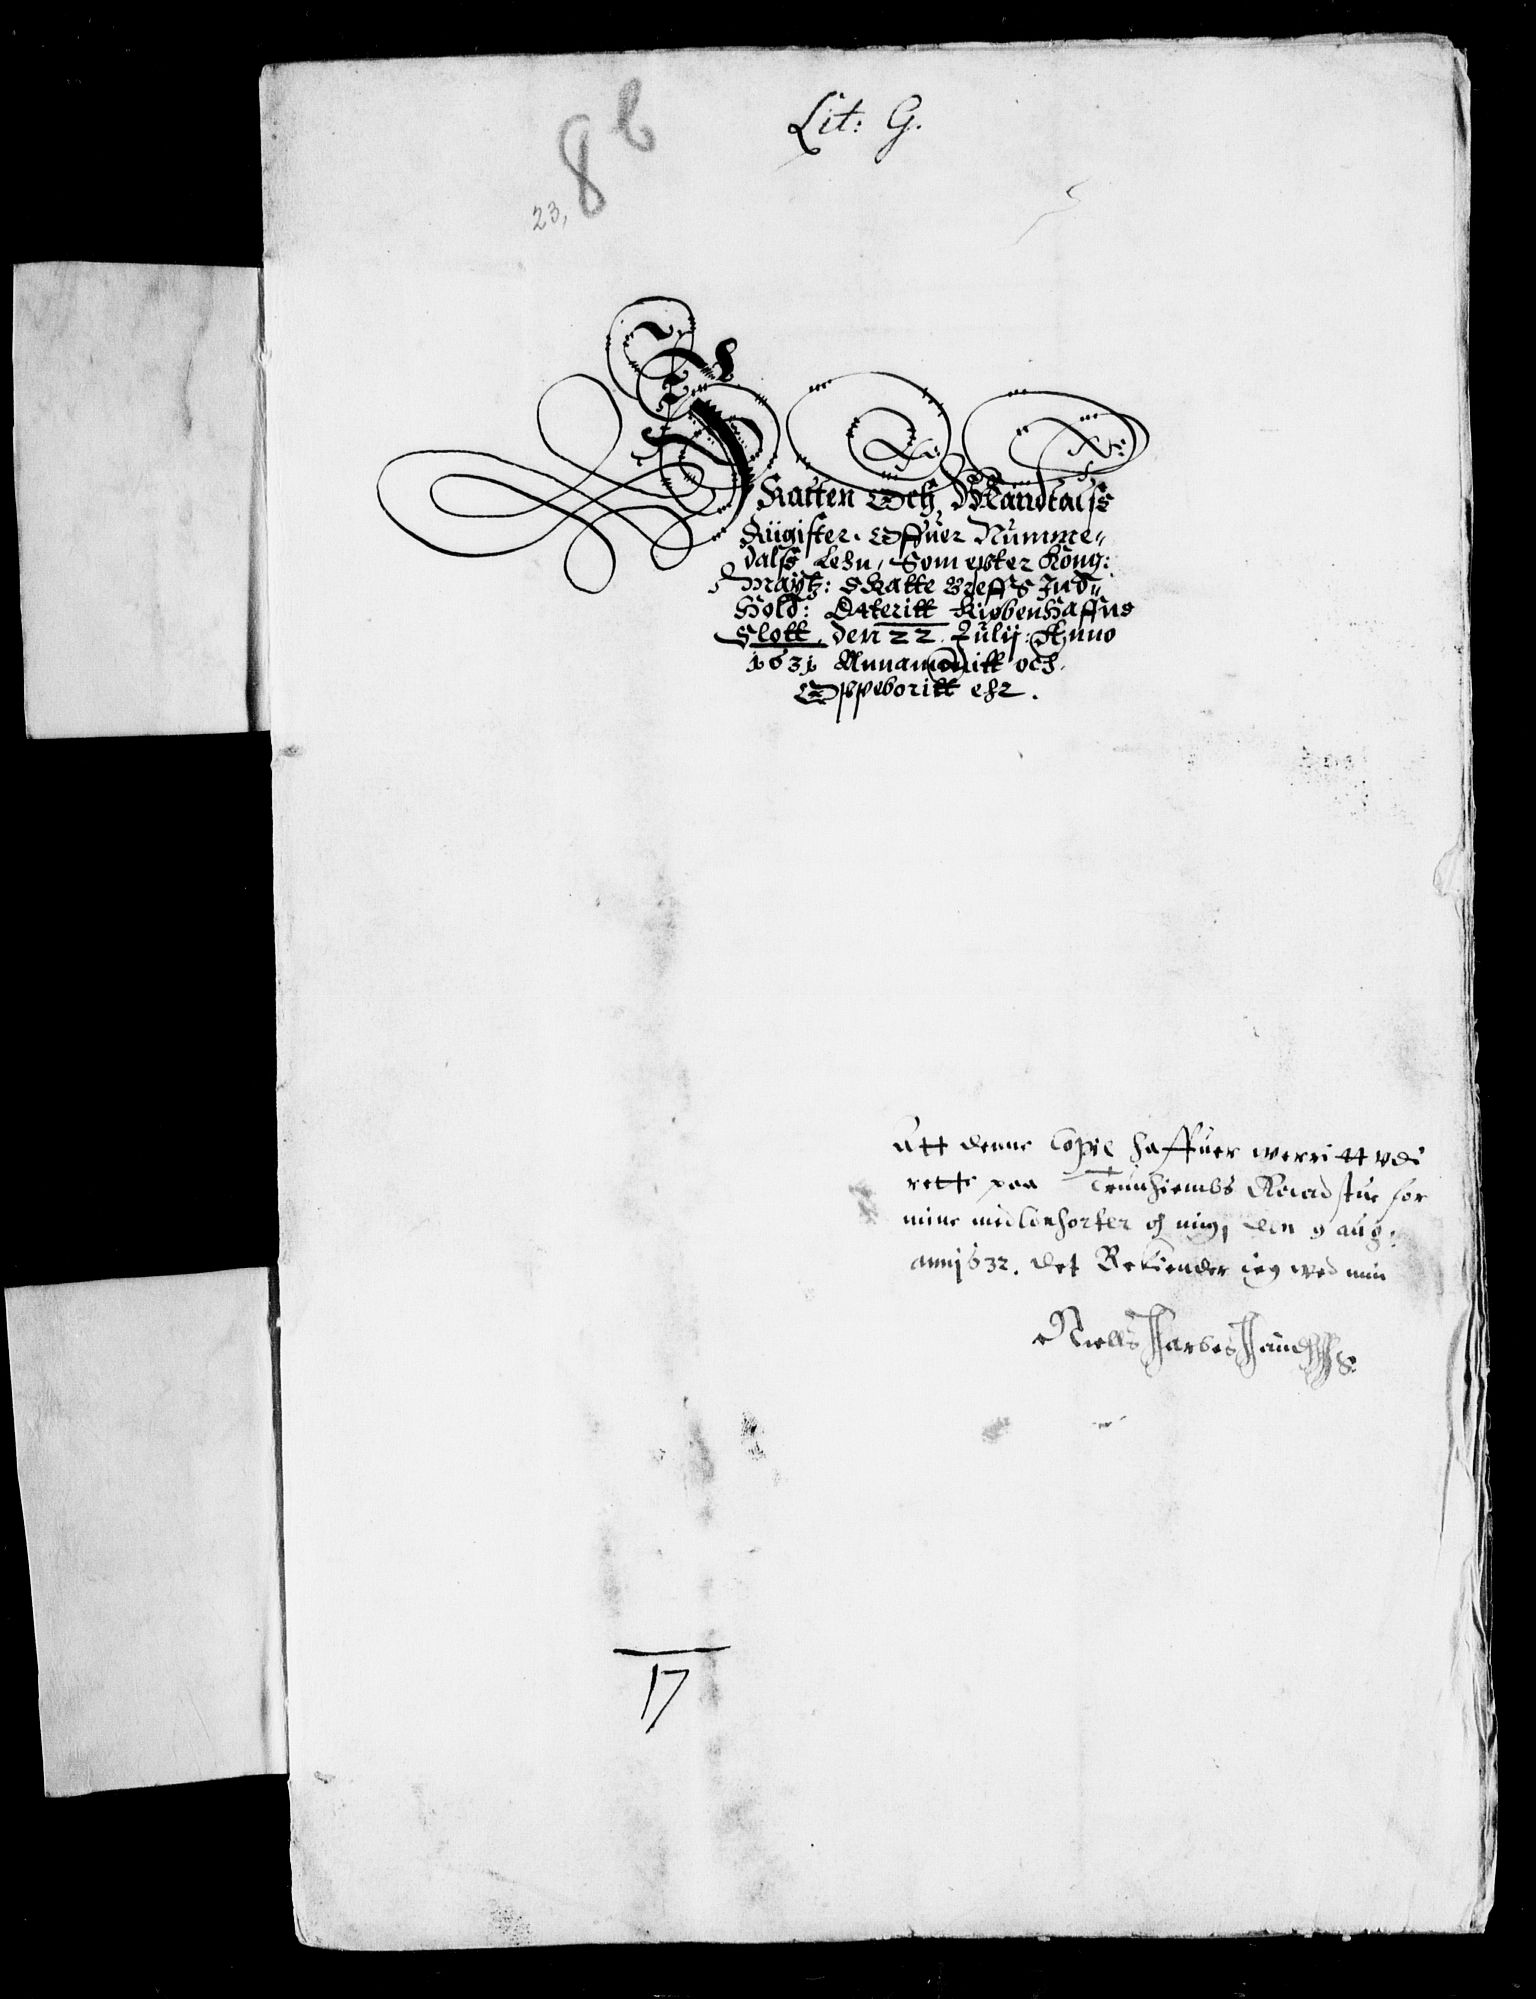 Lit: G.
8 b
23,
Skatten Och Mandtalss
Rügister. Offuer Numme„
dalss Lehn, Som epter Kong:
Maytz: Skatte Breffs Ind„
Hold: Dateritt Kiøbenhaffns
Slott den 22 Julij: Anno
1631 Annammitt och
Oppeboritt ehr.
Att denne Copie haffuer werritt vdi
rette paa Trundhiembs Raadstue for
mine medConsorter och mig, den 9 aug:
anno 1632. det Bekiender ieg med min
Niells
17